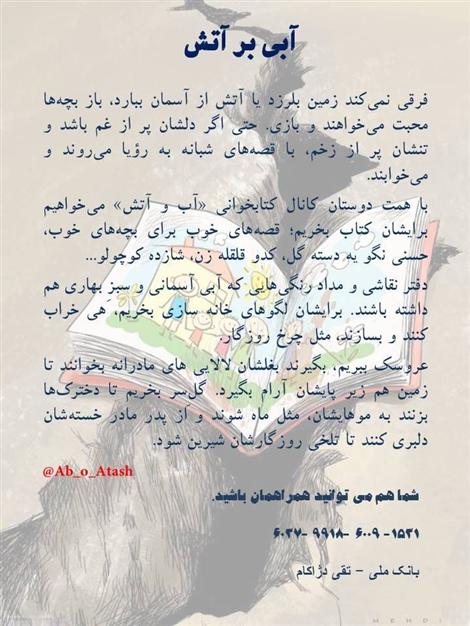 آبی بر آتش
فرقی نمی‌کند زمین بلرزد یا آتش از آسمان ببارد، باز بچه‌ها
محبت می‌خواهند و بازی. حتی اگر دلشان پر از غم باشد و
تنشان پر از زخم، با قصه‌های شبانه به رؤیا می‌روند و
می‌خوابند.
با همت دوستان کانال کتابخوانی «آب و آتش» می‌خواهیم
برایشان کتاب بخریم؛ قصه‌های خوب برای بچه‌های خوب،
حسنی نگو یه دسته گل، کدو قلقله زن، شازده کوچولو...
دفتر نقاشی و مداد رنگی‌هایی که آبی آسمانی و سبزِ بهاری هم
داشته باشند. برایشان لگوهای خانه سازی بخریم، هی خراب
کنند و بسازند، مثل چرخ روزگار.
عروسک ببریم، بگیرند بغلشان لالایی های مادرانه بخوانند تا
زمین هم زیر پایشان آرام بگیرد. گل‌سر بخریم تا دخترک‌ها
بزنند به موهایشان، مثل ماه شوند و از پدر مادر خسته‌شان
دلبری کنند تا تلخی روزگارشان شیرین شود.
@Ab_o_Atash
شما هم می توانید همراهمان باشید.
۶۰۳۷- ۹۹۱۸- ۶۰۰۹ -۱۵۳۱
بانک ملی – تقی دژاکام
MEHDI